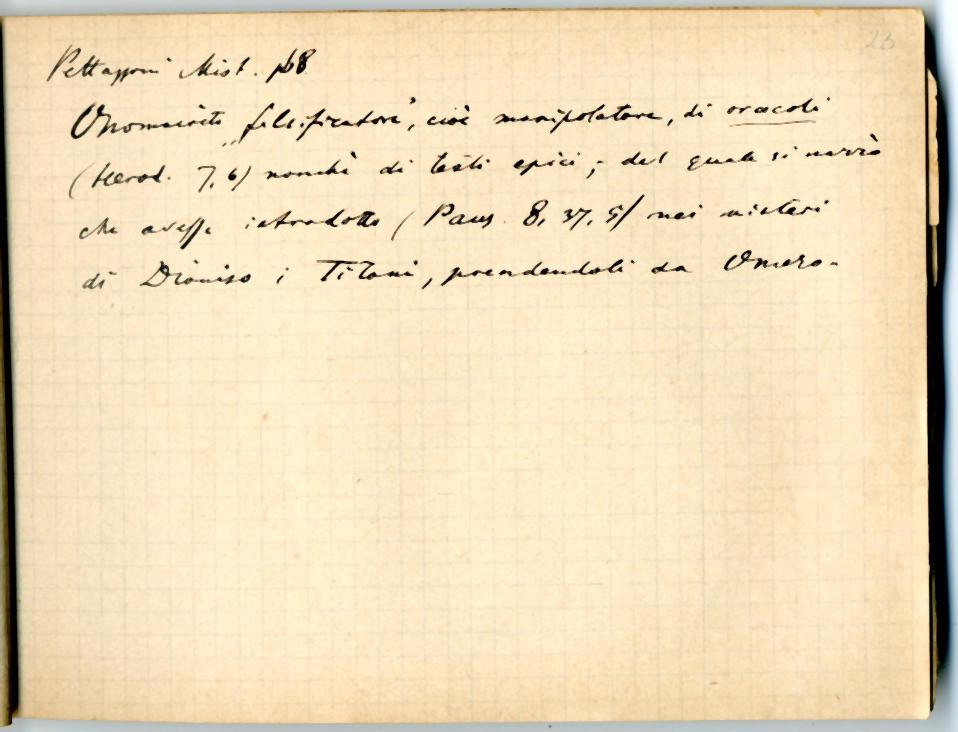 23
Pettazzoni Mist. p68
Onomacrito „falsificatore", cioè manipolatore, di oracoli
(Herod. 7,6) nonchè di testi epici; del quale si narrò
che avesse introdotto (Paus. 8, 37, 5) nei misteri
di Dioniso i Titani, prendendoli da Omero.